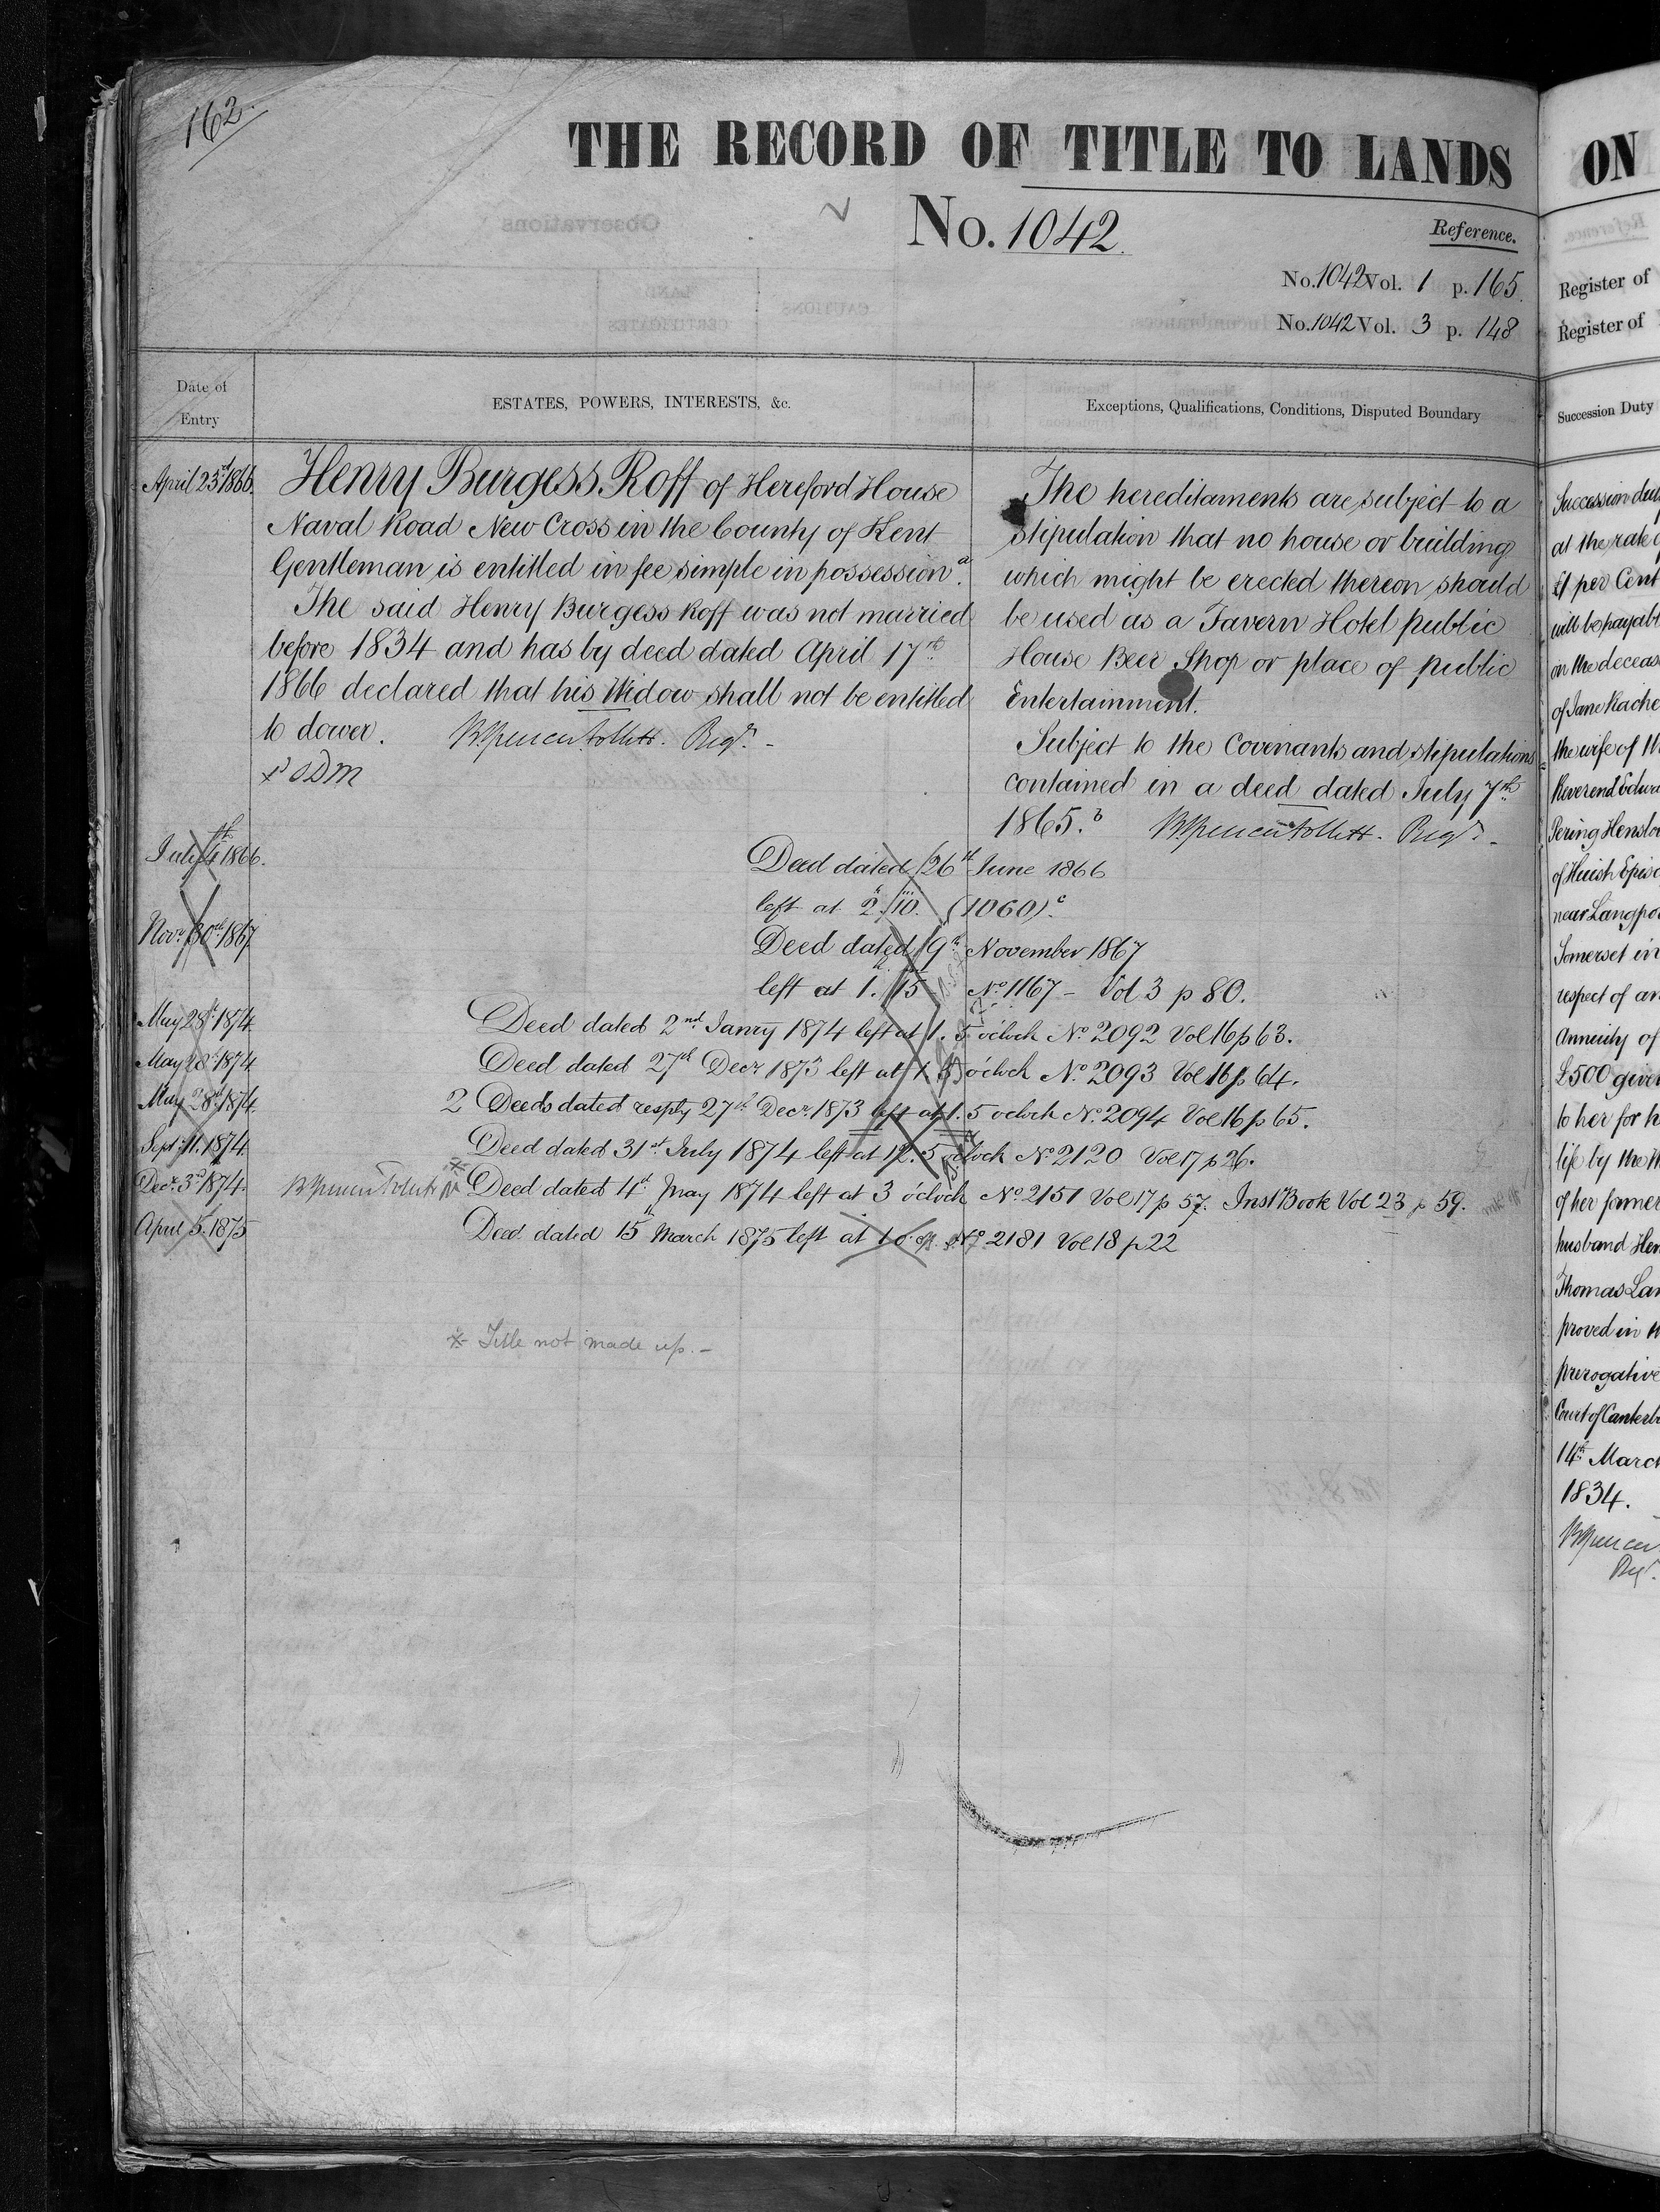 162.
THE RECORD OF TITLE TO LANDS
No. 1042.
Reference.
No. 1042 Vol. 1 p. 165.
No. 1042 Vol. 3 p. 148
Date of
Entry
ESTATES, POWERS, INTERESTS, &c.
Exceptions, Qualifications, Conditions, Disputed Boundary
April 23rd 1866.
Henry Burgess Roff of Hereford House
Naval Road New Cross in the County of Kent
Gentleman is entitled in fee simple in possession.a
The said Henry Burgess Roff was not married
before 1834 and has by deed dated April 17th
1866 declared that his Widow shall not be entitled
to dower. BSpencer Follett. Regr. -
The hereditaments are subject to a
stipulation that no house or building
which might be erected thereon should
be used as a Tavern Hotel public
House Beer Shop or place of public
Entertainment.
Subject to the Covenants and stipulations
contained in a deed dated July 7th
1865.b BSpencer Follett. Regr. -
July 4th 1866.
Deed dated 26th June 1866
left at 2h 10m. (1060)c.
Novr. 30th 1867
Deed dated 19th November 1867
left at 1h. 15m No. 1167 - Vol 3 p 80.
May 28th 1874.
Deed dated 2nd Janry 1874 left at 1. 5 o'clock No. 2092 Vol 16 p 63.
May 28th 1874
Deed dated 27th Decr 1873 left at 1. 5 o'clock No. 2093 Vol 16 p 64.
May 28th 1874.
2 Deeds dated resply 27th Decr. 1873 left at 1. 5 o'clock No. 2094 Vol 16 p 65.
Sept. 11. 1874.
Deed dated 31st July 1874 left at 12. 5 o'clock No. 2120 Vol 17 p 26.
Decr. 3rd 1874.
BSpencer Follett * Deed dated 4th May 1874 left at 3 o'clock No. 2151 Vol 17 p 57. Inst Book Vol 23 p 59.
April 5. 1875
Deed dated 15th March 1875 left at No 2181 Vol 18 p 22
* Title not made up. -
ON
Register of
Register of
Succession Duty
Succession
at the rate
£1 per Cent
will be
on the
of Jane
the wife of
Reverend
Pering
of Huish
near
Somerset in
respect of an
Annuity of
£500 given
to her for h
life by the
of her former
husband
Thomas
proved in
prerogative
Court of
14th March
1834.
BSpencer
Regr.